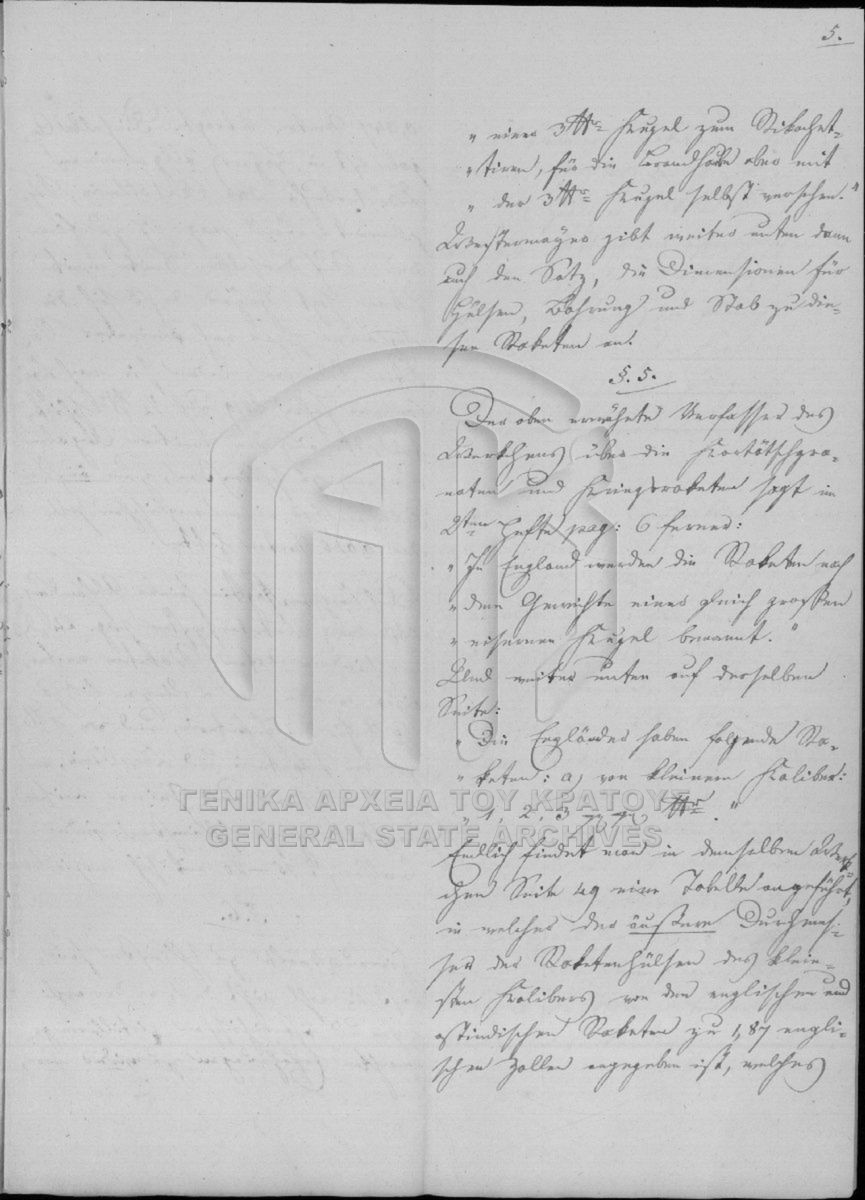 5.
„ einer 3 ℔r Kugel zum Rikochet-
„ tiren, für die Brandhaube aber mit
„ der 3 ℔r Kugel selbst versehen.“
Westermayer gibt weiter unten dann
auch den Satz, die Dimensionen für
Hülsen, Bohrung und Stab zu die-
sen Raketen an.
§. 5.
Der oben erwähnte Verfasser des
Werkchens über die Kartätschgra-
naten und Kriegsraketen sagt im
2ten Hefte pag: 6 ferner:
„ In England werden die Raketen nach
„ dem Gewichte einer gleich grossen
„ eisernen Kugel benannt.“
Und weiter unten auf derselben
Seite:
„ Die Engländer haben folgende Ra-
„ keten: a, von kleinem Kaliber:
„ 1, 2, 3 ℔r.“
Endlich findet man in demselben Werk-
chen Seite 49 eine Tabelle angeführt,
in welcher der äussere Durchmes-
ser der Raketenhülsen des klein-
sten Kalibers von den englischen und
ostindischen Raketen zu 1,87 engli-
schen Zollen angegeben ist, welches
ΓΕΝΙΚΑ ΑΡΧΕΙΑ ΤΟΥ ΚΡΑΤΟΥΣ
GENERAL STATE ARCHIVES